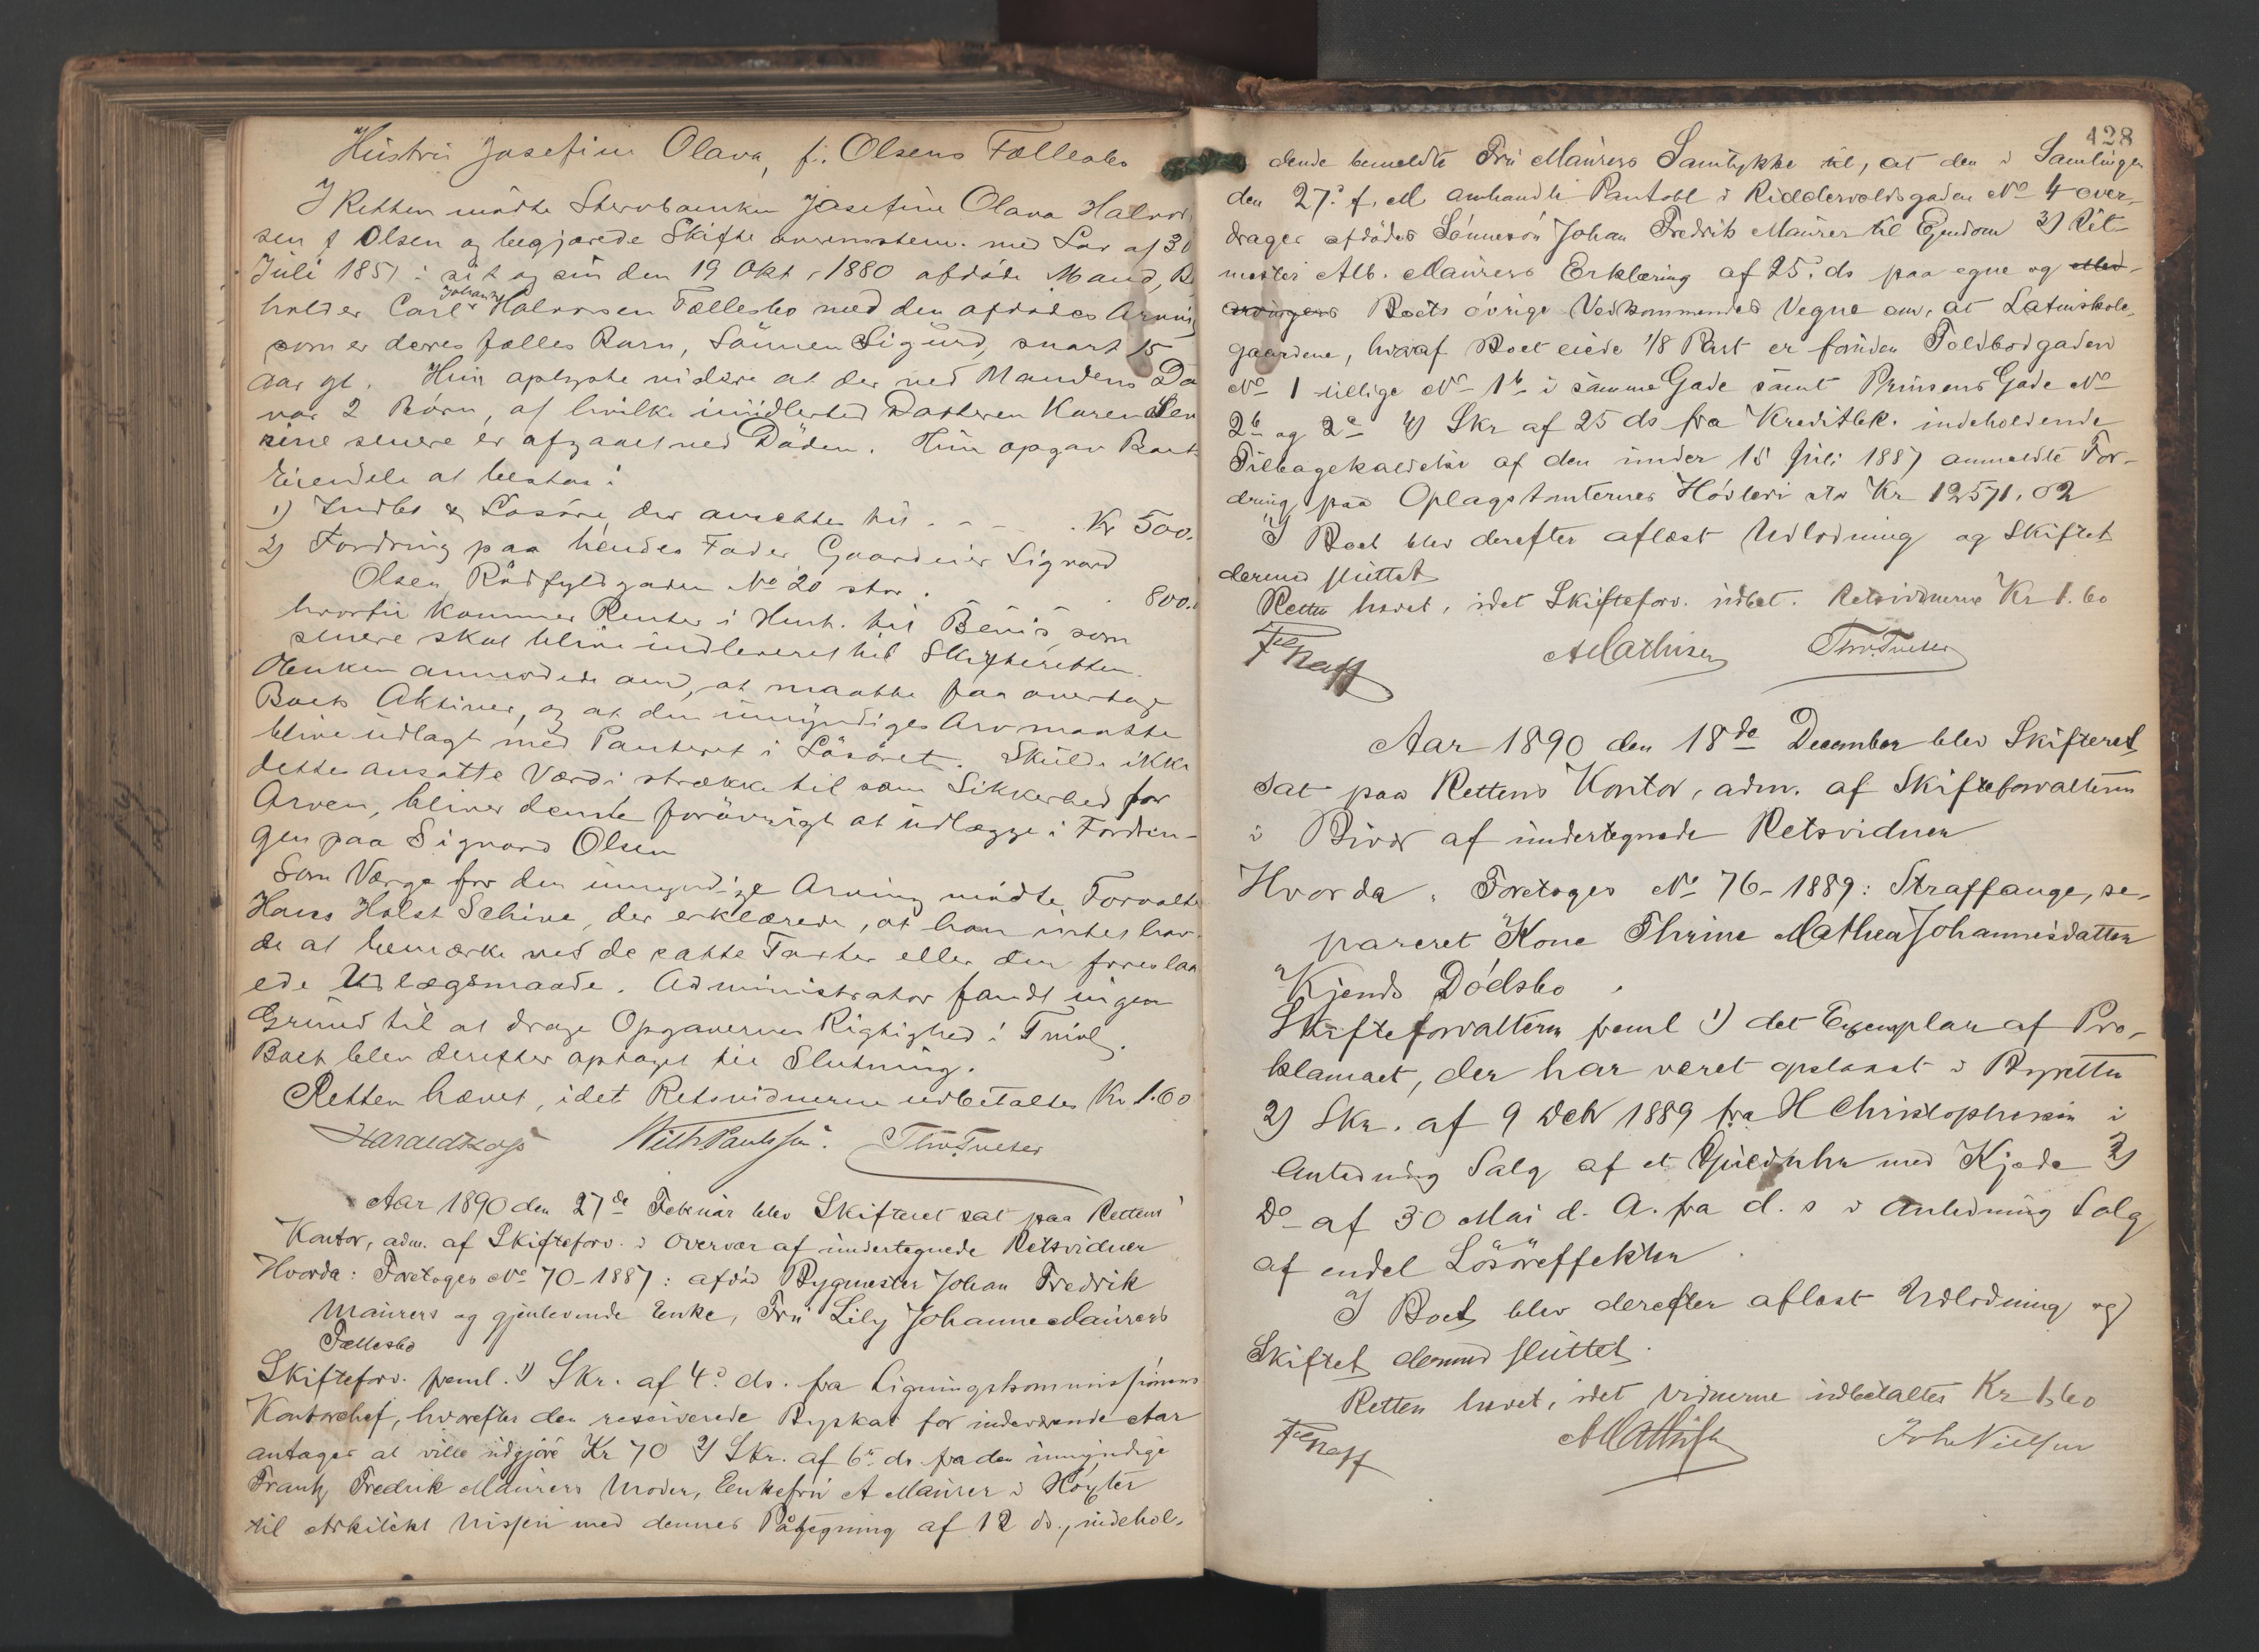 Hustru Josefine Olava, f. Olsens Fællesbo
I Retten mödte Stervboenken Josefine Olava Halvor-
sen f Olsen og begjærede Skifte overensstem. med Lov af 30
Juli 1851 i sit og sin den 19 Okt. 1880 afdöde Mand,
holder Carl Johan Halvorsen Fællesbo med den afdödes Arving
som er deres fælles Barn, Sönnen Sigurd, snart 15
Aar gl. Hun oplyste videre at der ved Mandens Dö
var 2 Börn, af hvilke imidlertid Datteren Karen
sine senere er afgaaet ved Döden. Hun opgav Boets
Eiendele at bestaa i
1) Indbo & Lösöre, der ansattes til . - - . Kr 500.
2) Fordring paa hendes Fader Gaardeier Sigvard
Olsen Rödfyldgaden No 20 stor . . 800.
hvorfor kommer Renter i Henh. til Bevis, som
senere skal blive indleveret til Skifteretten.
Enken anmodede om, at maatte faa overtage
Boets Aktiver, og at den umyndiges Arv maatte
blive udlagt med Panteret i Lösöret. Skulde ikke
dettes ansatte Værdi strække til som Sikkerhed for
Arven, bliver denne forövrigt at udlægge i Fordrin-
gen paa Sigvard Olsen
Som Værge for den umyndige Arving mödte Forvalter
Hans Holst Schive, der erklærede, at han intet hav-
de at bemærke ved de satte Taxter eller den foreslaa
ede Udlægsmaade. Administrator fandt ingen
Grund til at drage Opgavernes Rigtighed i Tvivl.
Boet blev derefter optaget til Slutning.
Retten hævet, idet Retsvidnerne udbetaltes Kr 1.60
Harald Kaas Wilh Paulssen. Thv. Tvether
Aar 1890 den 27de Februar blev Skifteret sat paa Rettens
Kontor, adm. af Skifteforv. i Overvær af undertegnede Retsvidner
Hvorda: Foretoges No 70-1887: afdöd Bygmester Johan Fredrik
Maurers og gjenlevende Enke, Fru Lily Johanne Maurers
Fællesbo
Skifteforv. freml. 1) Skr. af 4d ds. fra Ligningskommissionens
Kontorchef, hvorefter den reserverede Byskat for indeværende Aar
antages at ville udgjöre Kr 70 2) Skr. af 6te ds fra den umyndige
Frantz Fredrik Maurers Moder, Enkefru A Maurer i Höxter
til Arkitekt Nissen med dennes Påtegning af 12 ds., indehol-
128
dende bemeldte Fru Maurers Samtykke til, at den i Samlingen
den 27d f. M. omhandlede Pantobl i Riddervoldsgaden No 4 over-
drages afdödes Sönnesön Johan Fredrik Maurer til Ejendom 3) Rit-
mester Alb. Maurers Erklæring af 25d ds paa egne og med-
arvingers Boets övrige Vedkommendes Vegne om, at Latinskole-
gaardene, hvoraf Boet eiede 1/8 Part er foruden Toldbodgaden
No 1 tillige No 1b i samme Gade samt Prinsens Gade No
2b og 2c 4) Skr af 25 ds fra Kreditbk. indeholdende
Tilbagekaldelse af den under 15 Juli 1887 anmeldte For-
dring paa Oplagstomternes Hövleri stor Kr 12571,02
I Boet blev derefter aflæst Udlodning og Skiftet
dermed sluttet
Retten hævet, idet Skifteforv. udbet. Retsvidnerne Kr 1.60
AMathisen Thv. Tvether
Aar 1890 den 18de December blev Skifteret
sat paa Rettens Kontor, adm. af Skifteforvalteren
i Bivær af undertegnede Retsvidner
Hvorda: Foretoges No 76-1889: Straffange, se-
pareret Kone Thrine Mathea Johannisdatter
Kjends Dödsbo.
Skifteforvalteren freml 1) det Exemplar af Pro-
klamaet, der har været opslaaet i Byretten
2) Skr. af 9 Dcbr 1889 fra H Christophersen i
Anledning Salg af et Gulduhr med Kjede 3)
Do af 30 Mai d. A. fra d. s i Anledning Salg
af endel Lösöreffekter.
I Boet blev derefter aflæst Udlodning og
Skiftet dermed sluttet.
Retten hævet, idet Vidnerne udbetaltes Kr 1,60
AMathisen Joh. Nielsen